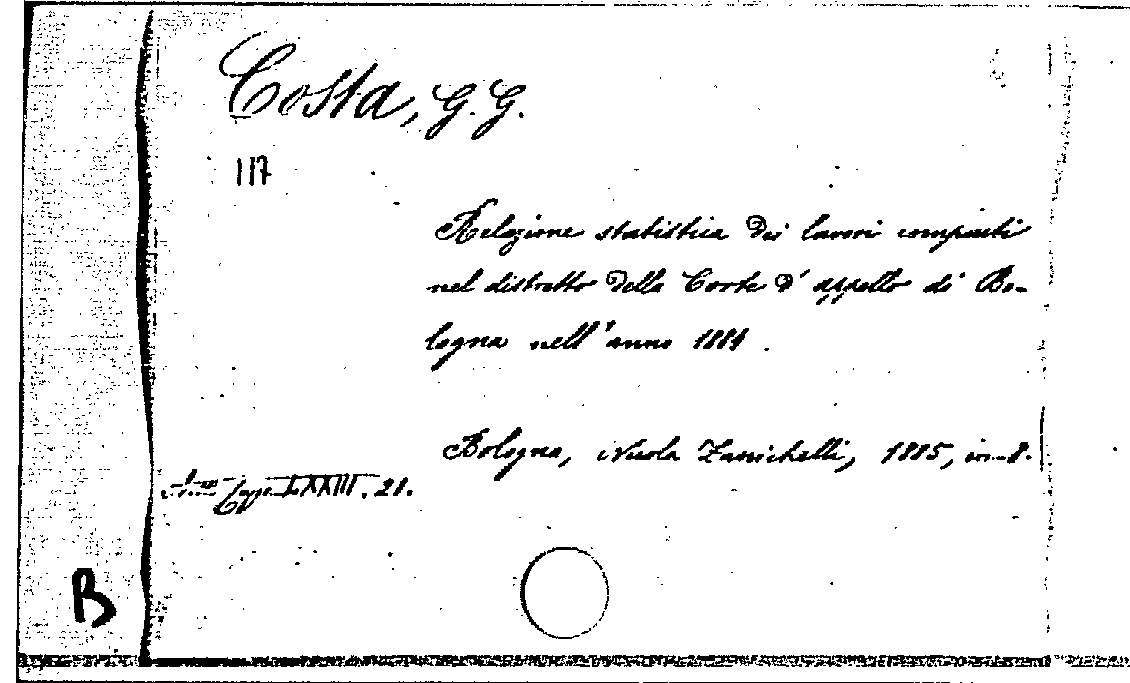 Costa, G. G.
117
Relazione statistica dei lavori compiuti
nel distretto della Corte d'appello di Bo-
logna nell'anno 1884.
Bologna, Nicola Zanichelli, 1885, in-8.
XXIII. 21.
B